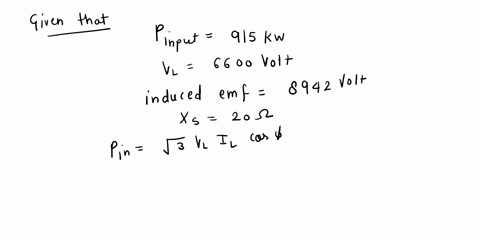 Given that
Pinput = 915 kw
VL = 6600 Volt
induced emf = 8942 Volt
Xs = 20 Ω
Pin = √3 VL IL cos ϕ